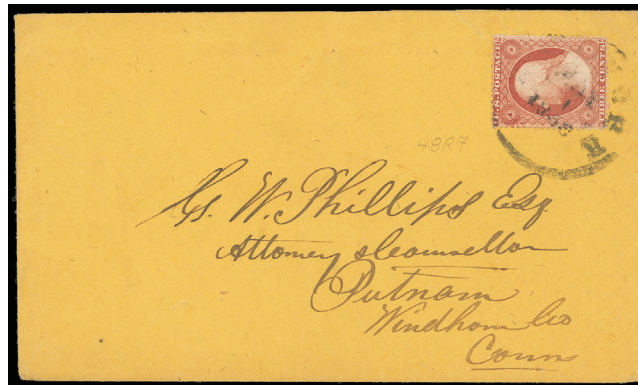 U.S. POSTAGE
THREE CENTS
48R7
G. W. Phillips Esq.
Attorney & Counsellor
Putnam
Windham Co
Conn